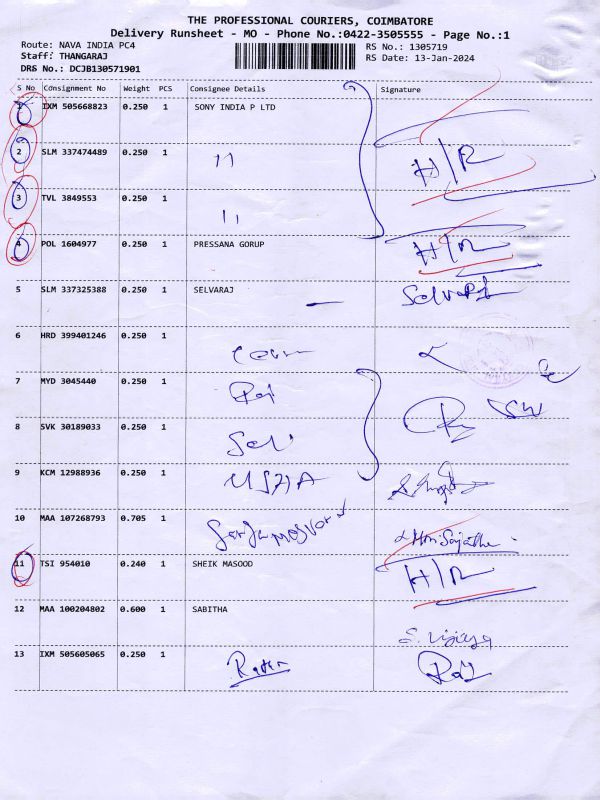 THE PROFESSIONAL COURIERS, COIMBATORE
Delivery Runsheet - MO - Phone No.:0422-3505555 - Page No.:1
Route: NAVA INDIA PC4 RS No.: 1305719
Staff: THANGARAJ RS Date: 13-Jan-2024
DRS No.: DCJB130571901
S No Consignment No Weight PCS Consignee Details Signature
1 IXM 505668823 0.250 1 SONY INDIA P LTD
2 SLM 337474489 0.250 1 11 H/R
3 TVL 3849553 0.250 1 11
4 POL 1604977 0.250 1 PRESSANA GORUP H/R
5 SLM 337325388 0.250 1 SELVARAJ
6 HRD 399401246 0.250 1
7 MYD 3045440 0.250 1
8 SVK 30189033 0.250 1
9 KCM 12988936 0.250 1 USHA
10 MAA 107268793 0.705 1
11 TSI 954010 0.240 1 SHEIK MASOOD H/R
12 MAA 100204802 0.600 1 SABITHA S. Vijaya
13 IXM 505605065 0.250 1